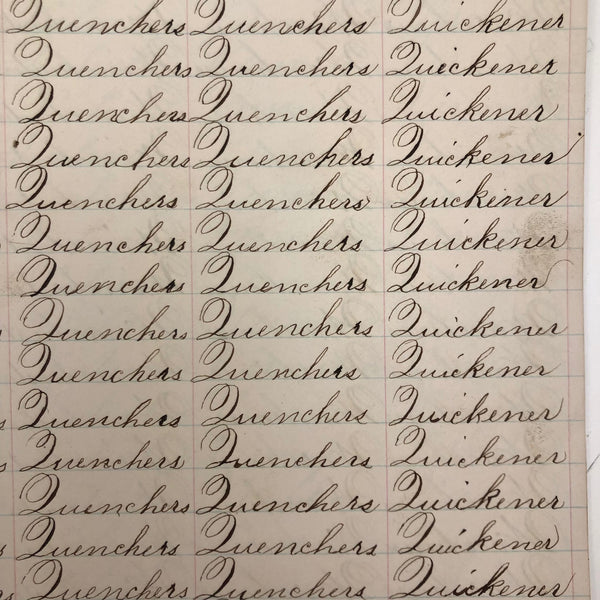 Quenchers Quenchers Quickener
Quenchers Quenchers Quickener
Quenchers Quenchers Quickener
Quenchers Quenchers Quickener
Quenchers Quenchers Quickener
Quenchers Quenchers Quickener
Quenchers Quenchers Quickener
Quenchers Quenchers Quickener
Quenchers Quenchers Quickener
Quenchers Quenchers Quickener
Quenchers Quenchers Quickener
Quenchers Quenchers Quickener
Quenchers Quenchers Quickener
Quenchers Quenchers Quickener